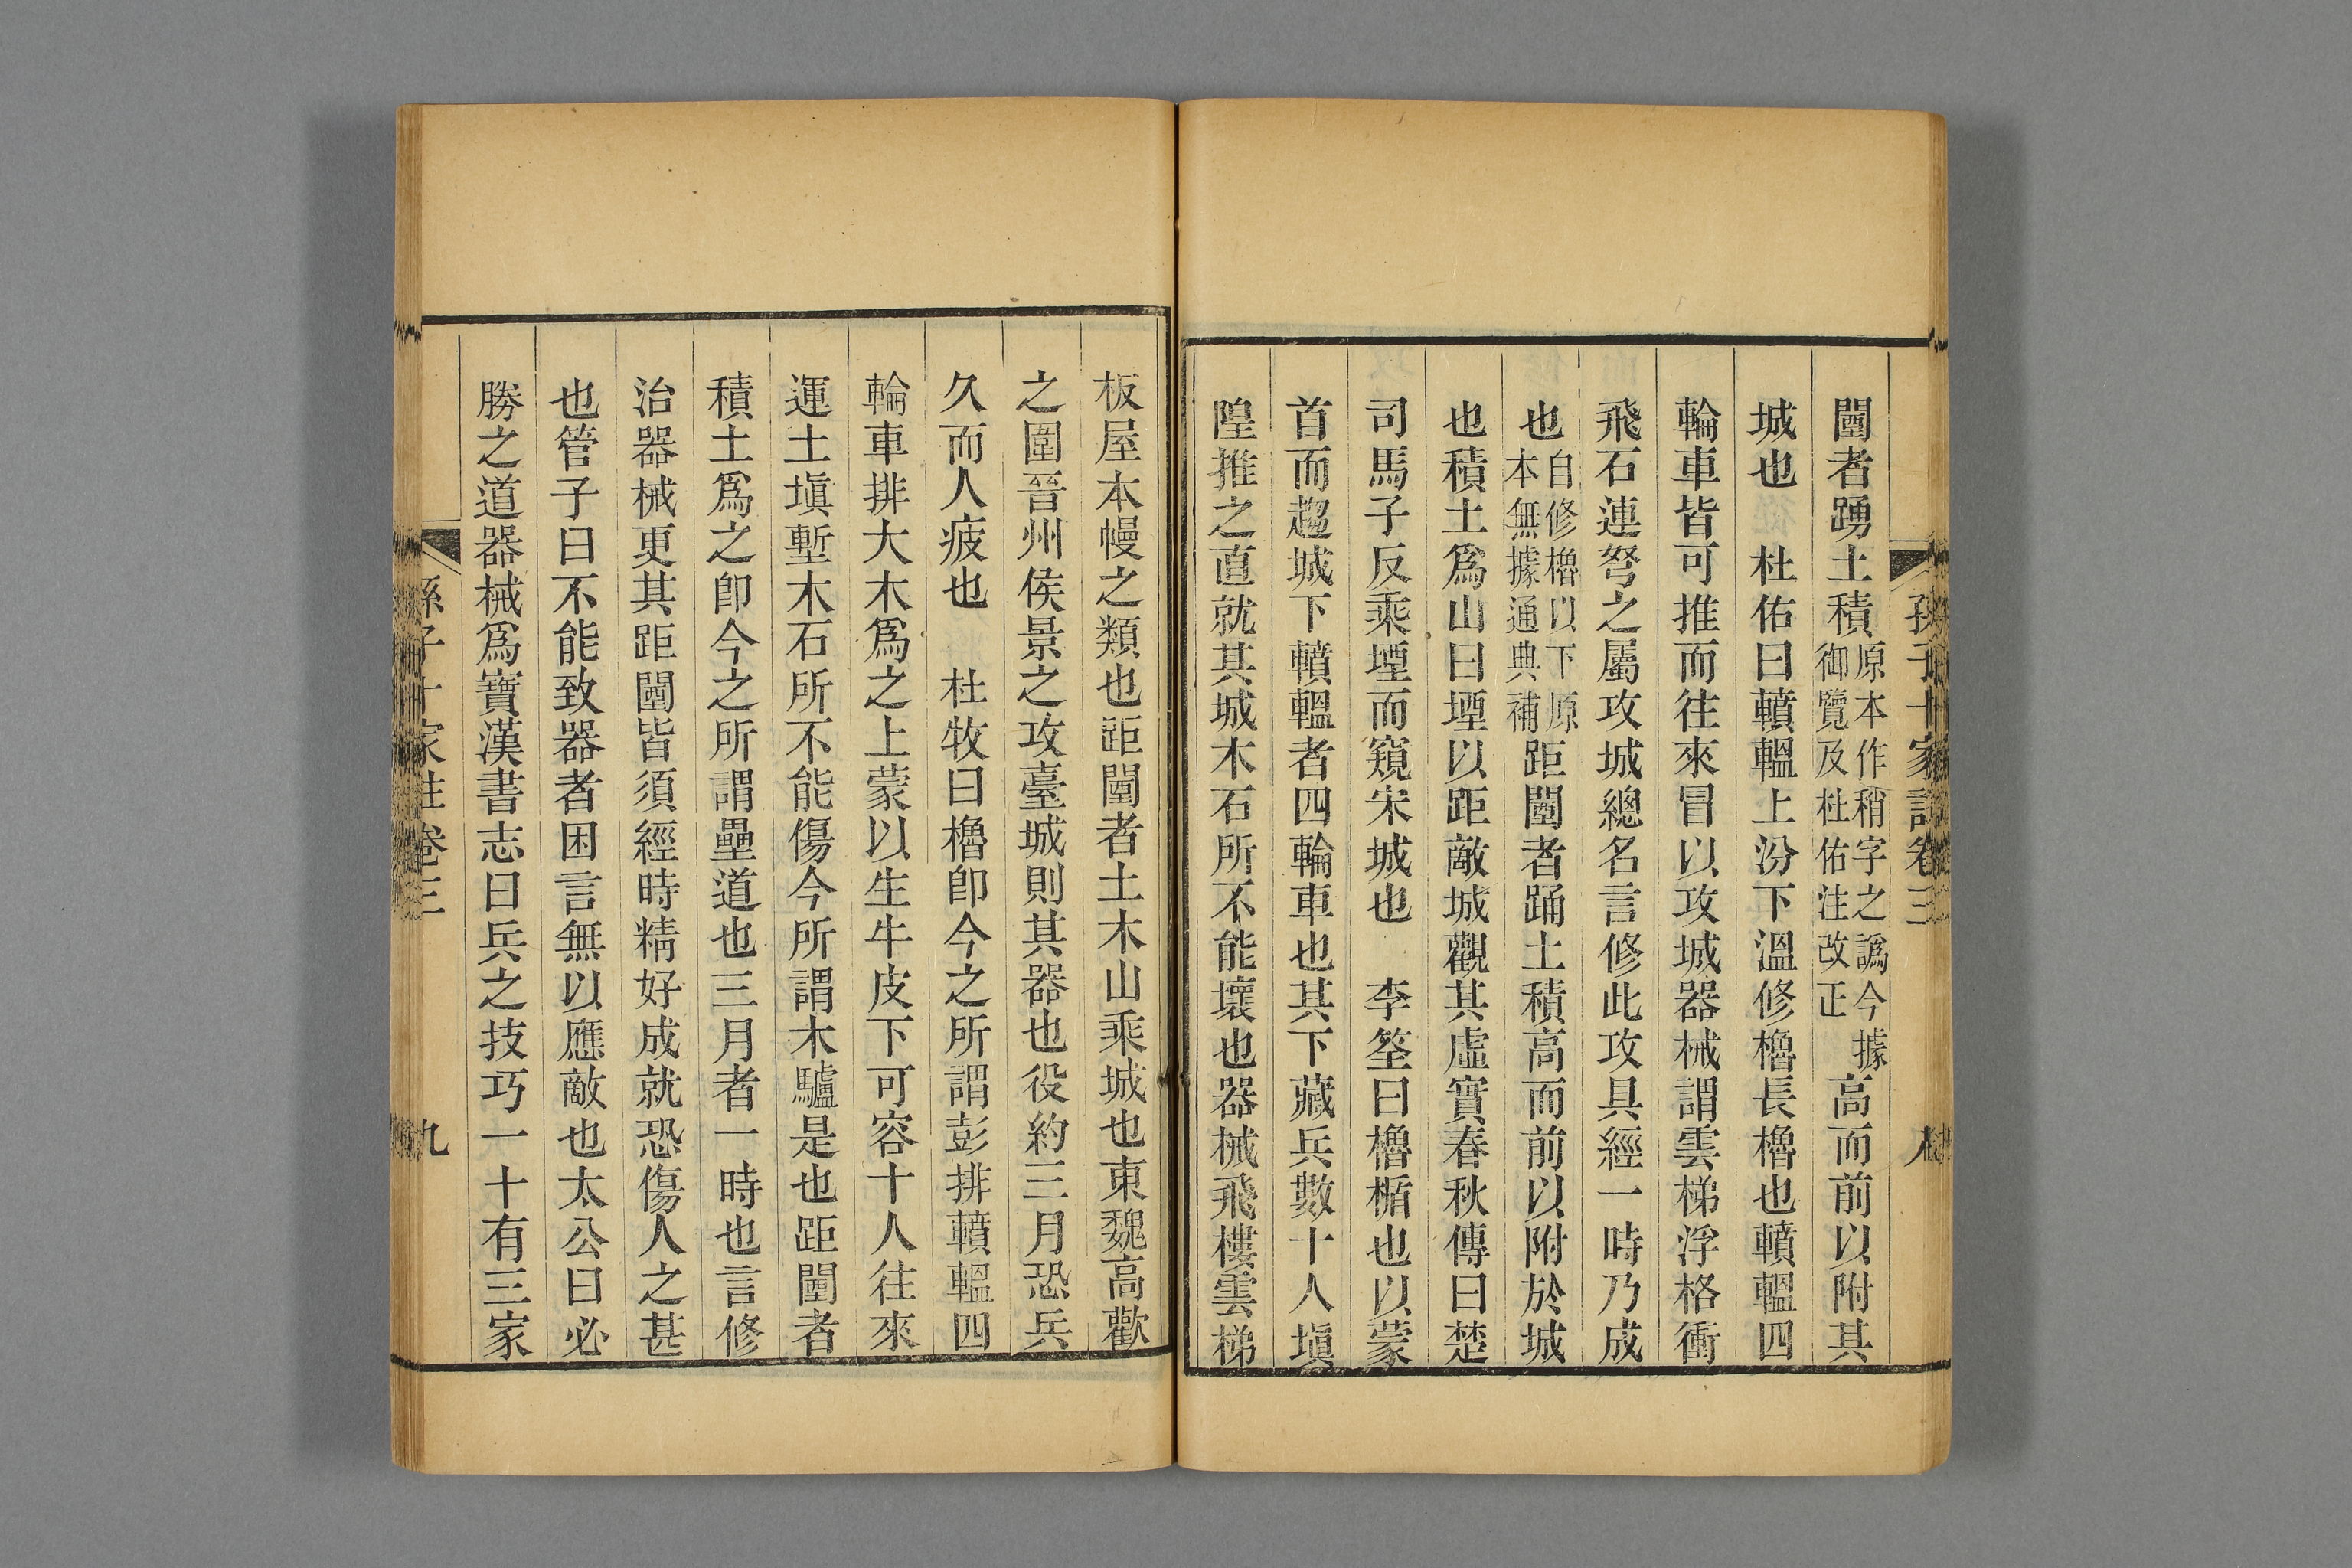 孫子十家註卷三 八
闉者踴土積原本作稍字之譌今據御覽及杜佑注改正高而前以附其
城也 杜佑曰轒轀上汾下溫修櫓長櫓也轒轀四
輪車皆可推而往來冒以攻城器械謂雲梯浮格衝
飛石連弩之屬攻城總名言修此攻具經一時乃成
也自修櫓以下原本無據通典補距闉者踊土積高而前以附於城
也積土爲山曰堙以距敵城觀其虛實春秋傳曰楚
司馬子反乘堙而窺宋城也 李筌曰櫓楯也以蒙
首而趨城下轒轀者四輪車也其下藏兵數十人塡
隍推之直就其城木石所不能壞也器械飛樓雲梯
板屋本幔之類也距闉者土木山乘城也東魏高歡
之圍晉州侯景之攻臺城則其器也役約三月恐兵
久而人疲也 杜牧曰櫓卽今之所謂彭排轒轀四
輪車排大木爲之上蒙以生牛皮下可容十人往來
運土塡塹木石所不能傷今所謂木驢是也距闉者
積土爲之卽今之所謂壘道也三月者一時也言修
治器械更其距闉皆須經時精好成就恐傷人之甚
也管子曰不能致器者困言無以應敵也太公曰必
勝之道器械爲寶漢書志曰兵之技巧一十有三家
孫子十家註卷三 九